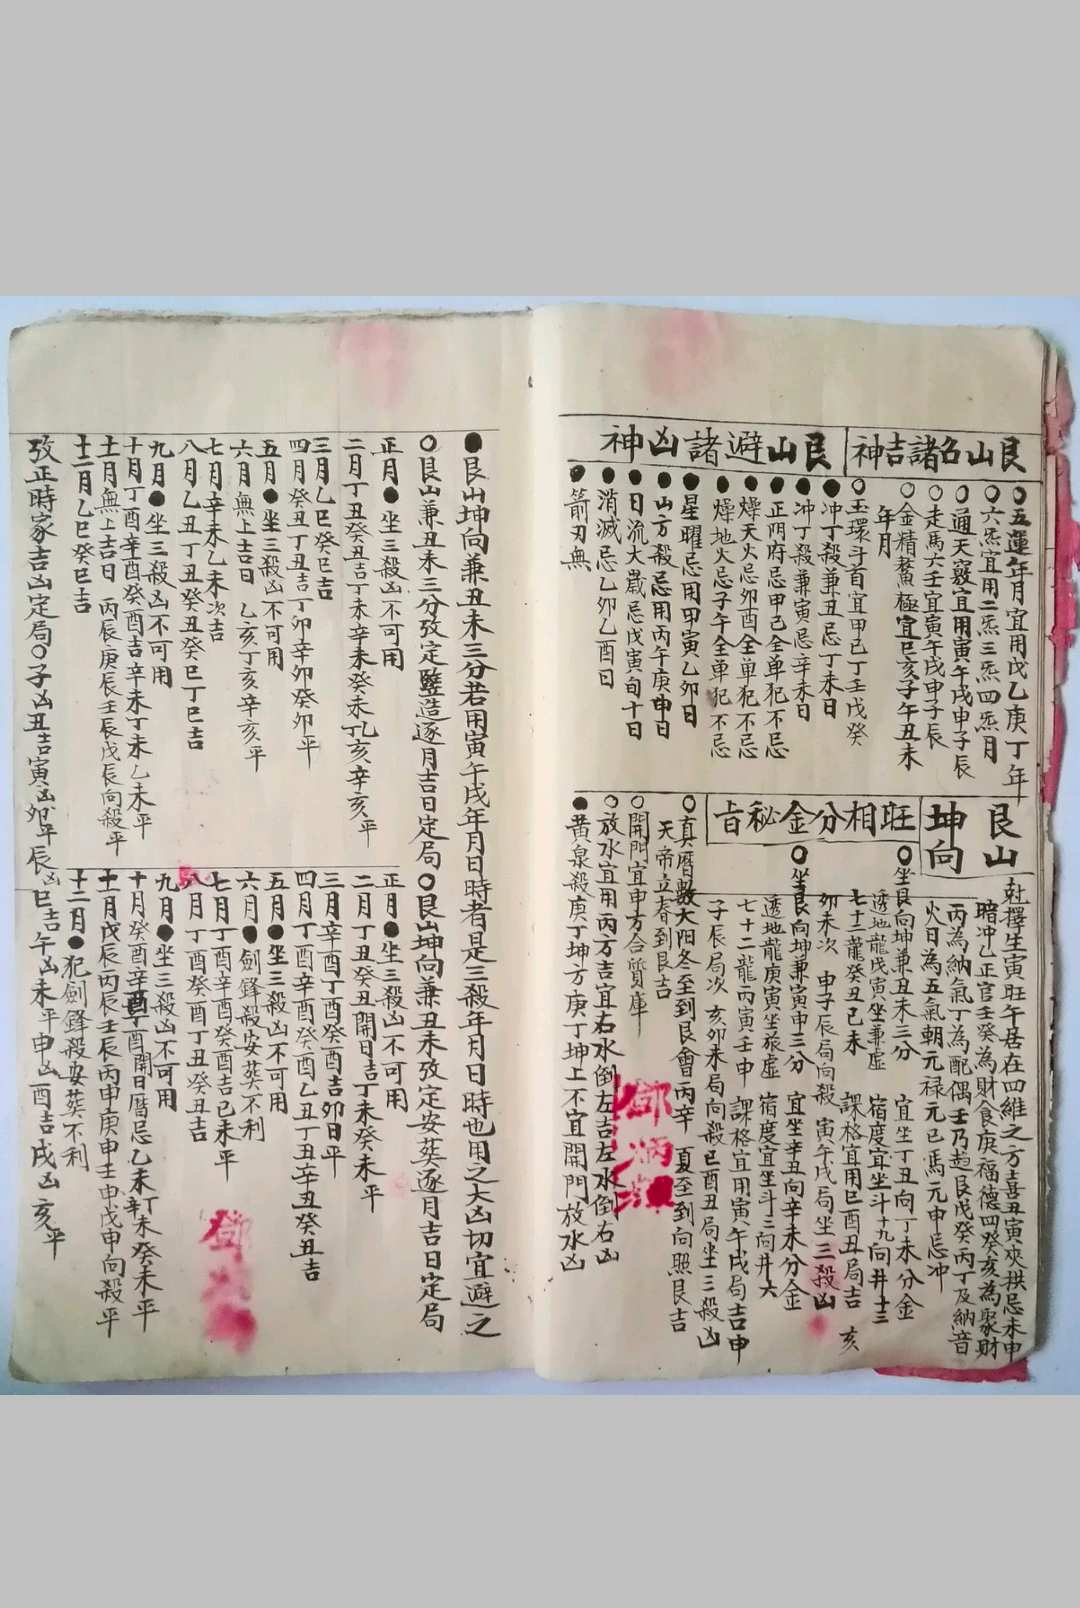 艮山名諸吉神
○五運年月宜用戊乙庚丁年
○六炁宜用二炁三炁四炁月
○通天竅宜用寅午戌申子辰
○走馬六壬宜寅午戌申子辰
○金精鰲極宜巳亥子午丑未
年月
○玉環斗首宜甲己丁壬戊癸
艮山避諸凶神
●冲丁殺兼丑忌丁未日
●冲丁殺兼寅忌辛未日
●正阴府忌甲己全单犯不忌
●燥天火忌卯酉全单犯不忌
●燥地火忌子午全单犯不忌
●星曜忌用甲寅乙卯日
●山方殺忌用丙午庚申日
●日流大歲忌戊寅旬十日
●消滅忌乙卯乙酉日
●箭刃無
艮山
坤向
尅擇生寅旺午居在四維之方喜丑寅夾拱忌未申
暗冲乙正官壬癸為財食庚福德四癸亥為聚財
丙為納氣丁為配偶壬乃起艮戊癸丙丁及納音
火日為五氣朝元禄元巳馬元申忌冲
旺相分金秘旨
○坐艮向坤兼丑未三分　宜坐丁丑向丁未分金
透地龍戊寅坐兼虛　宿度宜坐斗十九向井十三
七十二龍癸丑己未　課格宜用巳酉丑局吉　亥
卯未次　申子辰局向殺　寅午戌局坐三殺凶
○坐艮向坤兼寅申三分　宜坐辛丑向辛未分金
透地龍庚寅坐旅虛　宿度宜坐斗三向井六
七十二龍丙寅壬申　課格宜用寅午戌局吉申
子辰局次　亥卯未局向殺巳酉丑局坐三殺凶
○真曆數大阳冬至到艮會丙辛　夏至到向照艮吉
天帝立春到艮吉
○開門宜申方合質庫
○放水宜用丙方吉宜右水倒左吉左水倒右凶
●黃泉殺庚丁坤方庚丁坤上不宜開門放水凶
●艮山坤向兼丑未三分若用寅午戌年月日時者是三殺年月日時也用之大凶切宜避之
○艮山兼丑未三分攷定豎造逐月吉日定局
正月●坐三殺凶不可用
二月丁丑癸丑吉丁未辛未癸未乙亥辛亥平
三月乙巳癸巳吉
四月癸丑丁丑吉丁卯辛卯癸卯平
五月●坐三殺凶不可用
六月無上吉日　乙亥丁亥辛亥平
七月辛未乙未次吉
八月乙丑丁丑癸丑癸巳丁巳吉
九月●坐三殺凶不可用
十月丁酉辛酉癸酉吉辛未丁未乙未平
十一月無上吉日　丙辰庚辰壬辰戊辰向殺平
十二月乙巳癸巳吉
○艮山坤向兼丑未攷定安葬逐月吉日定局
正月●坐三殺凶不可用
二月丁丑癸丑開日吉丁未癸未平
三月辛酉丁酉癸酉吉卯日平
四月丁酉辛酉癸酉乙丑丁丑辛丑癸丑吉
五月●坐三殺凶不可用
六月●劍鋒殺安葬不利
七月丁酉辛酉癸酉吉己未平
八月丁酉癸酉丁丑癸丑吉
九月●坐三殺凶不可用
十月癸酉辛酉丁酉開日曆忌乙未辛未丁未癸未平
十一月戊辰丙辰壬辰丙申庚申壬申戊申向殺平
十二月●犯劍鋒殺安葬不利
攷正時家吉凶定局○子凶丑吉寅凶卯平辰凶巳吉午凶未平申凶酉吉戌凶亥平